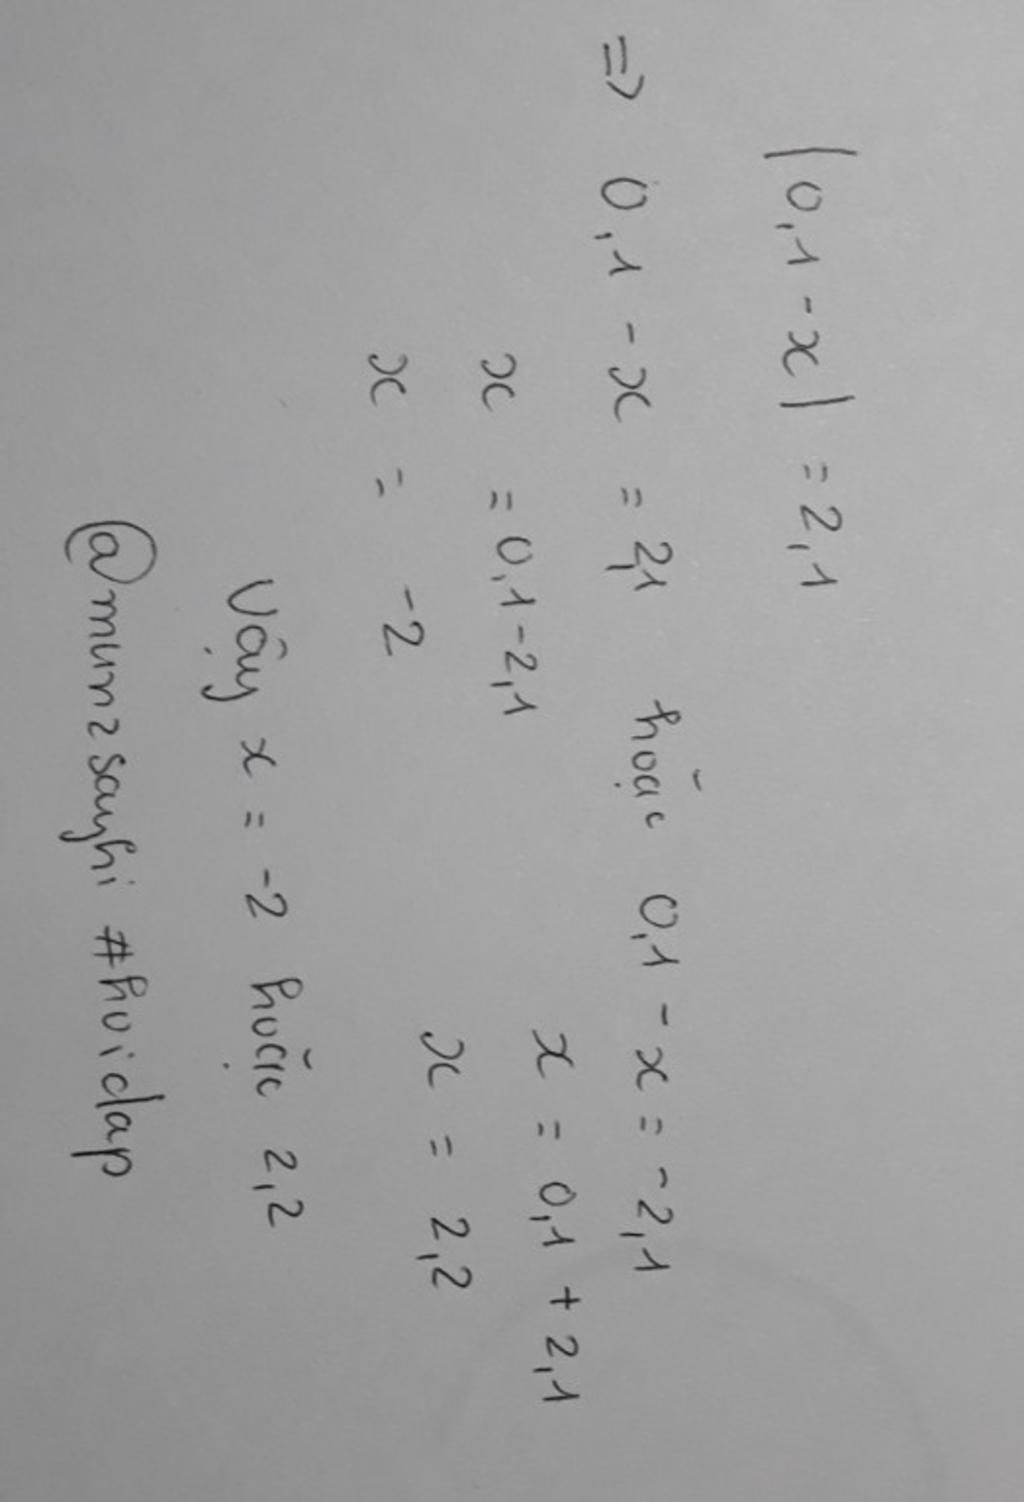 |0,1 - x| = 2,1
=> 0,1 - x = 2,1 hoặc 0,1 - x = -2,1
x = 0,1 - 2,1 x = 0,1 + 2,1
x = -2 x = 2,2
Vậy x = -2 hoặc 2,2
@munzsayhi #hoidap